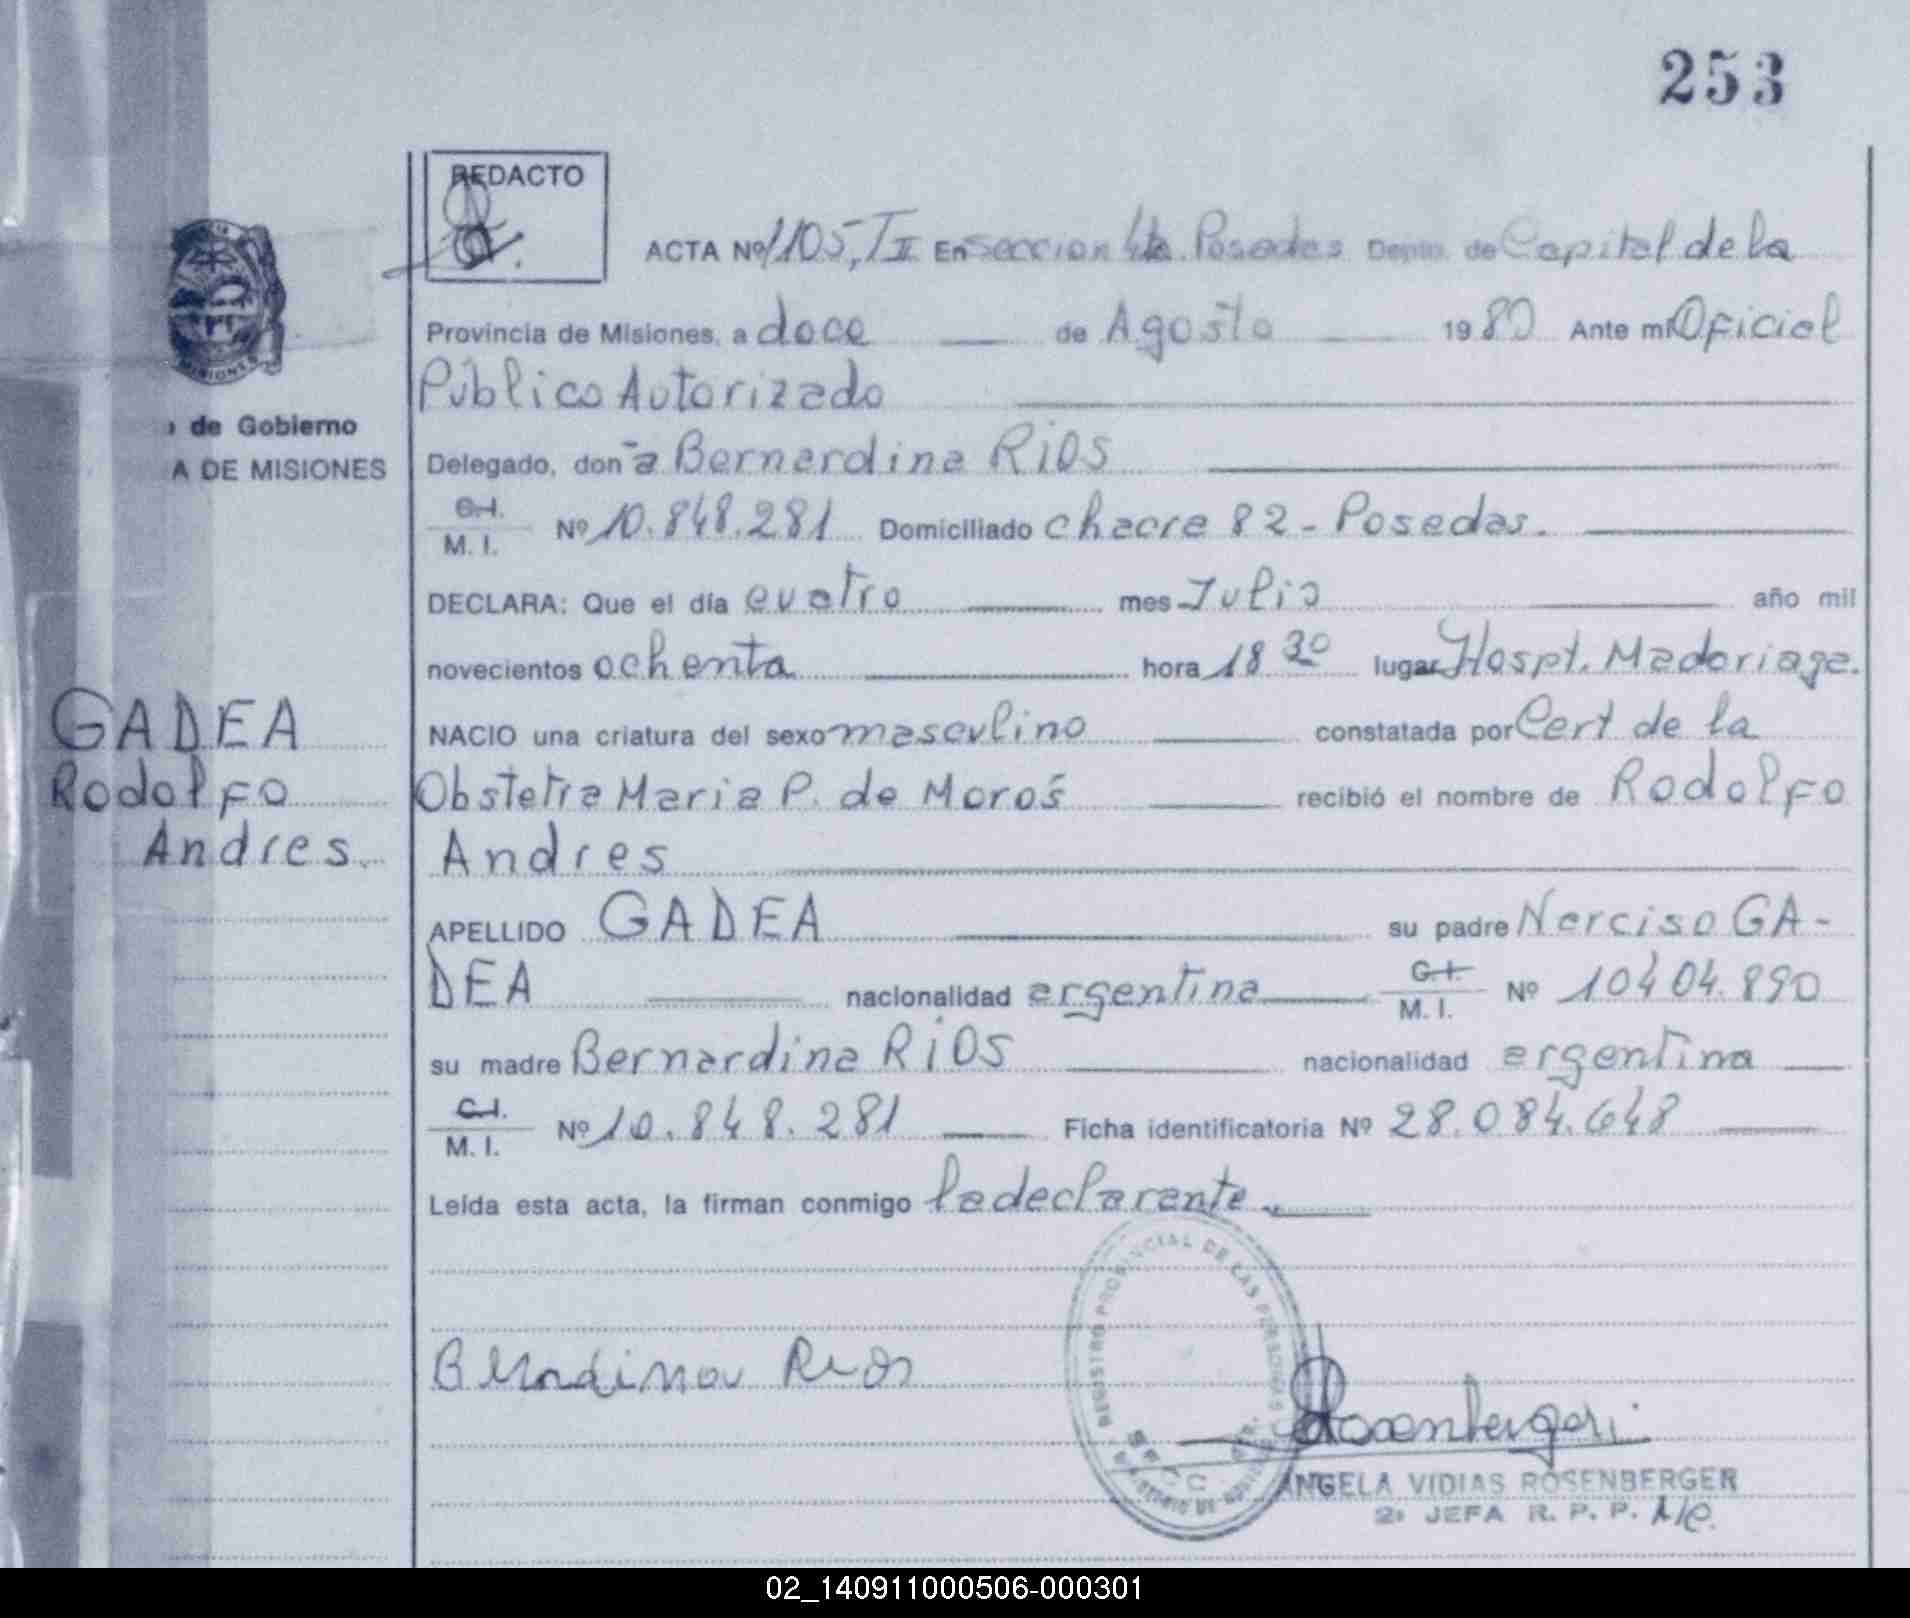 253
REDACTO
ACTA Nº 1105, T II En Seccion 4ta. Posadas Depto. de Capital de la
Provincia de Misiones, a doce de Agosto 1980 Ante mi Oficial
Público Autorizado
de Gobierno
A DE MISIONES
Delegado, don~a Bernardina RiOS
C.I. M. I. Nº 10.848.281 Domiciliado chacra 82 - Posadas.
DECLARA: Que el día cuatro mes Julio año mil
novecientos ochenta hora 18 30 lugar Hospt. Madariaga.
GADEA
Rodolfo
Andres.
NACIO una criatura del sexo masculino constatada por Cert de la
Obstetra Maria P. de Moros recibió el nombre de Rodolfo
Andres
APELLIDO GADEA su padre Narciso GA-
DEA nacionalidad argentina C.I. M. I. Nº 10404.890
su madre Bernardina RiOS nacionalidad argentina
C.I. M. I. Nº 10.848.281 Ficha identificatoria Nº 28.084.648
Leída esta acta, la firman conmigo la declarante.
REGISTRO PROVINCIAL DE LAS PERSONAS
SECC
Bernadina Rios
Rosenberger
ANGELA VIDIAS ROSENBERGER
2º JEFA R. P. P.
02_140911000506-000301